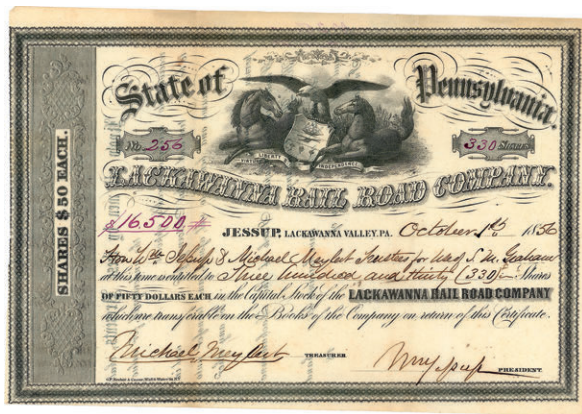 State of Pennsylvania.
No. 256
330 Shares
VIRTUE LIBERTY INDEPENDENCE
LACKAWANNA RAIL ROAD COMPANY.
$16,500
JESSUP, LACKAWANNA VALLEY, PA. October 1st 1856
Hon Wm Jessup & Michael Meylert Trustees for use of S. M. Graham
at this time is entitled to Three hundred and thirty (330) Shares
OF FIFTY DOLLARS EACH in the Capital Stock of the LACKAWANNA RAIL ROAD COMPANY
which are transferable on the Books of the Company on return of this Certificate.
Michael Meylert TREASURER
Wm Jessup PRESIDENT.
SHARES $50 EACH.